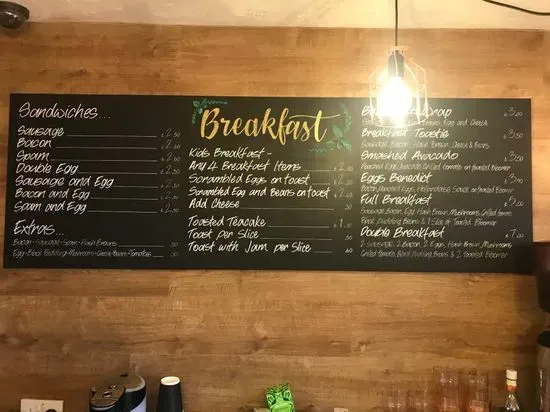 Sandwiches...
Sausage £2.50
Bacon £2.50
Spam £2.50
Double Egg £2.50
Sausage and Egg £2.50
Bacon and Egg £2.50
Spam and Egg £2.50
Extras...
Bacon - Sausage - Spam - Hash Browns .50
Egg - Black Pudding - Mushrooms - Cheese - Beans - Tomatoes .30
Breakfast
Kids Breakfast -
Any 4 Breakfast Items £2.50
Scrambled Eggs on toast £2.50
Scrambled Egg and Beans on toast £2.50
Add Cheese .50
Toasted Teacake £1.
Toast per Slice .50
Toast with Jam per Slice .50
Breakfast Wrap £3.00
Sausage, Hash Browns, Egg and Cheese
Breakfast Toastie £3.50
Sausage, Bacon, Hash Brown, Cheese & Beans
Smashed Avocado £3.50
Poached Eggs, Avocado, Grilled tomato on toasted Bloomer
Eggs Benedict £3.90
Bacon, Poached Eggs, Hollandaise Sauce on toasted Bloomer
Full Breakfast £5.00
Sausage, Bacon, Egg, Hash Brown, Mushrooms, Grilled tomato
Black Pudding, Beans & 1 Slice of Toasted Bloomer
Double Breakfast £7.00
2 Sausage, 2 Bacon, 2 Eggs, Hash Brown, Mushrooms
Grilled Tomato, Black Pudding, Beans & 2 Toasted Bloomer